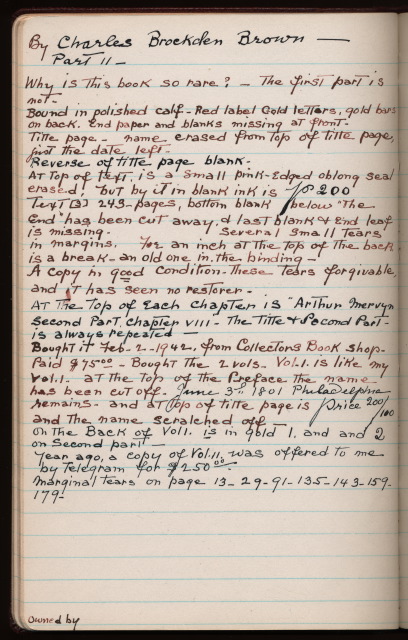 By Charles Brockden Brown —
Part II —
Why is this book so rare? — The first part is
not —
Bound in polished calf - Red label Gold letters, gold bars
on back. End paper and blanks missing at front -
Title page — name erased from top of title page,
just the date left -
Reverse of title page blank.
At Top of text, is a small pink-Edged oblong seal
erased! but by it in blank ink is /p 200
Text [3] 243-pages, bottom blank / below "The
End" has been cut away, & last blank & End leaf
is missing. Several small Tears
in margins. For an inch at the top of the back
is a break - an old one in the binding —
A Copy in good Condition - These Tears forgivable,
and it has seen no restorer -
At The Top of Each Chapter is "Arthur Mervyn
Second Part, Chapter VIII - The Title & Second Part -
is always repeated —
Bought it Feb - 2 - 1942. from Collectors Book Shop -
Paid $75.00 - Bought the 2 vols. Vol. I. is like my
Vol. I. at the top of the Preface the name
has been cut off. "June 3" 1801 Philadelphia
remains - and at top of title page is / Price 200/100
and the name scratched off —
On the Back of Vol I. is in gold 1, and and 2
on Second part —
Year ago, a copy of Vol. II, was offered to me
by Telegram for $250.00 —
Marginal tears on page 13 - 29 - 91 - 135 - 143 - 159 -
179 -
Owned by